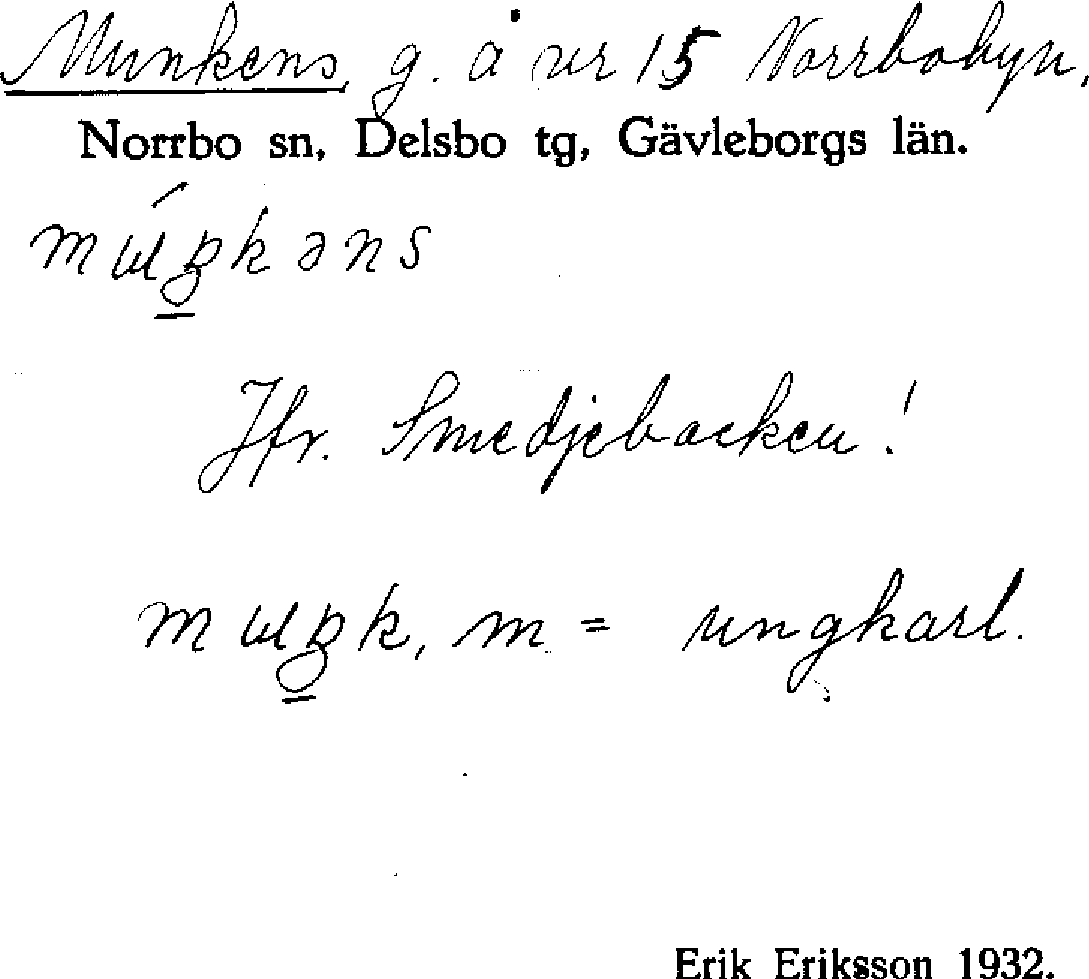 Munkens, g. å nr 15 Norrbobyn,
Norrbo sn, Delsbo tg, Gävleborgs län.
Jfr. Smedjebacken!
m = ungkarl.
Erik Eriksson 1932.